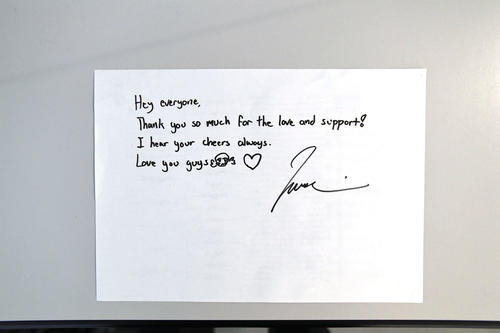 Hey everyone,
Thank you so much for the love and support!
I hear your cheers always.
Love you guys